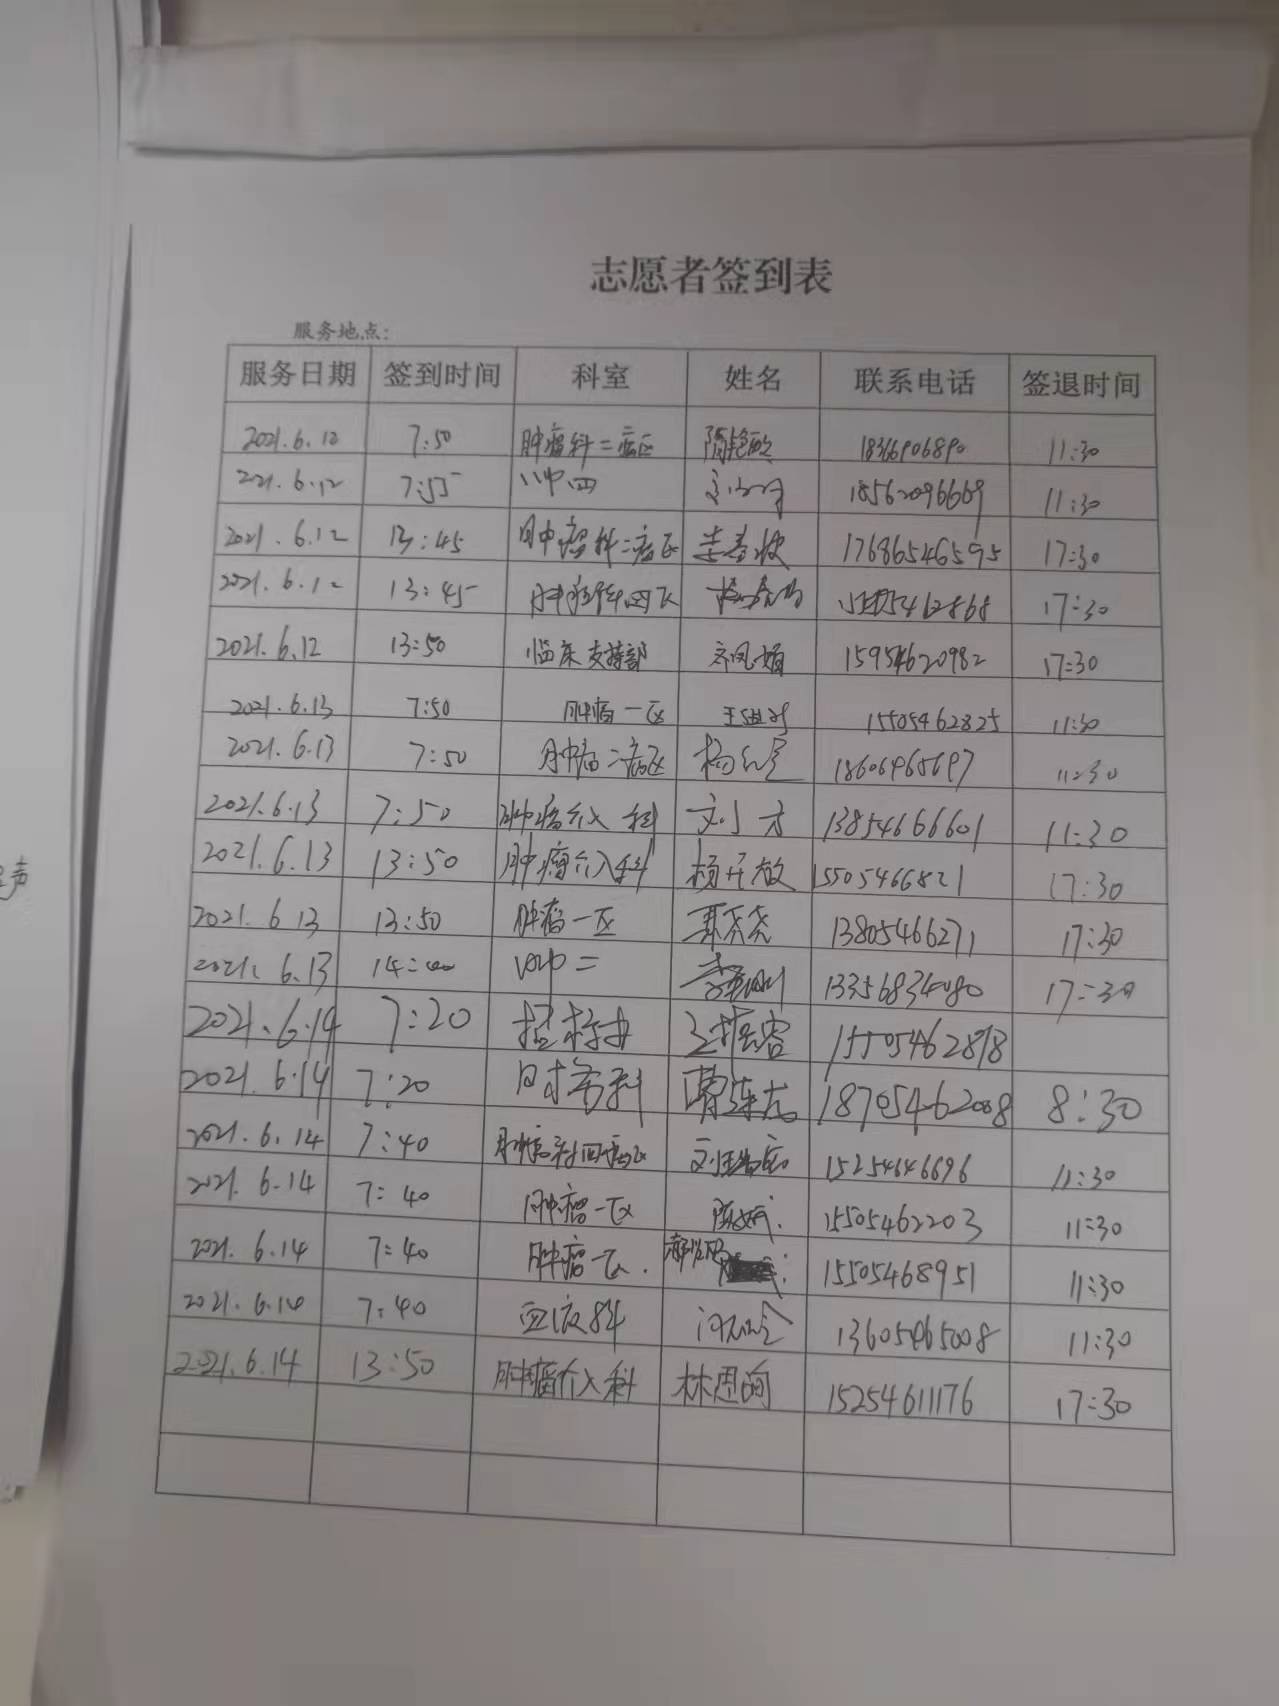 志愿者签到表
服务地点:
服务日期 签到时间 科室 姓名 联系电话 签退时间
2021.6.12 7:50 肿瘤科二病区 18366906890 11:30
2021.6.12 7:55 四 18562096669 11:30
2021.6.12 13:45 肿瘤科二病区 17686546595 17:30
2021.6.12 13:45 17:30
2021.6.12 13:50 临床支持部 齐凤娟 15954620982 17:30
2021.6.13 7:50 肿瘤一区 15505462825 11:30
2021.6.13 7:50 肿瘤二病区 杨红星 18606465697 11:30
2021.6.13 7:50 肿瘤介入科 刘方 13854666601 11:30
2021.6.13 13:50 肿瘤介入科 杨开敏 15505466821 17:30
2021.6.13 13:50 肿瘤一区 13805466271 17:30
2021.6.13 14:00 二 13356834080 17:30
2021.6.14 7:20 15505462898
2021.6.14 7:20 18705462008 8:30
2021.6.14 7:40 肿瘤科四病区 15254646696 11:30
2021.6.14 7:40 肿瘤一区 15505462203 11:30
2021.6.14 7:40 肿瘤一区 15505468951 11:30
2021.6.14 7:40 血液科 13605465008 11:30
2021.6.14 13:50 肿瘤介入科 林思询 15254611176 17:30
声